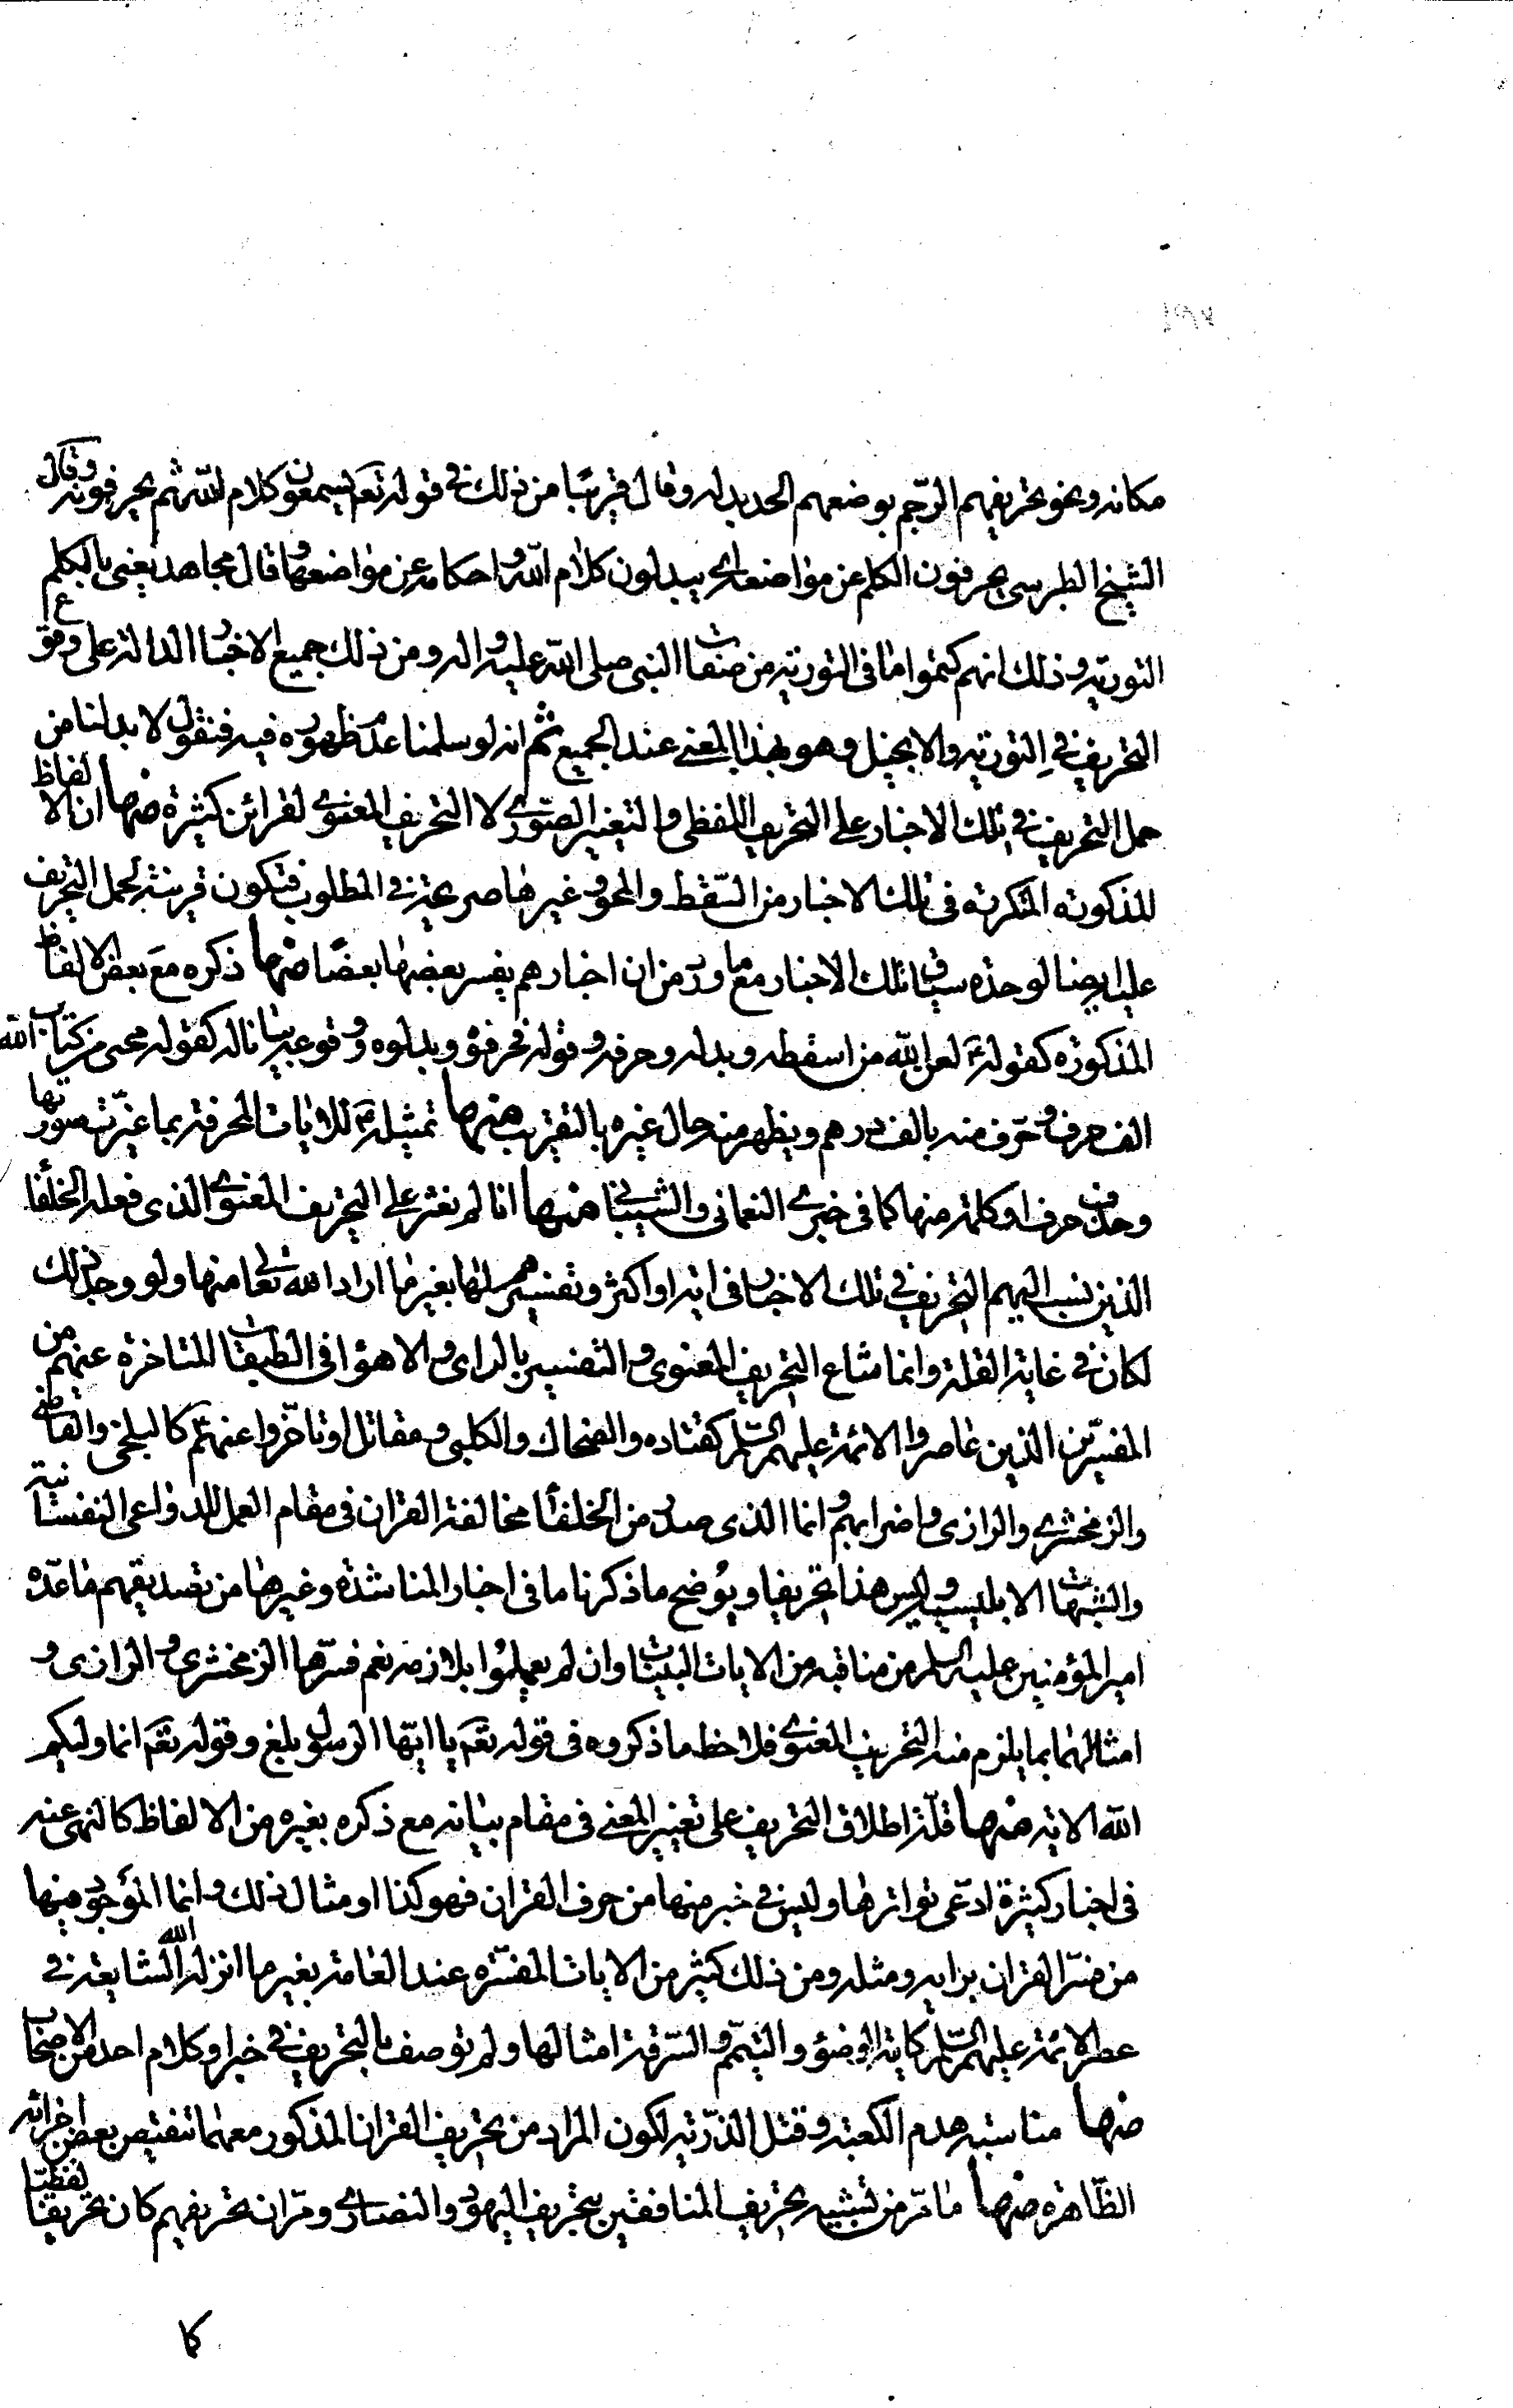 مكانه ونحو تحريفهم الرّجم بوضعهم الحد بدله وقال قريبًا من ذلك في قوله تعم يسمعون كلام الله ثم يحرفونه وقال
الشيخ الطبرسي يحرفون الكلم عن مواضعه اي يبدلون كلام الله واحكامه عن مواضعها وقال مجاهد يعني بالكلم
التورية وذلك انهم كتموا ما في التورية من صفات النبي صلى الله عليه واله ومن ذلك جميع الاخبار الدالة على وقوع
التحريف في التورية والانجيل وهو بهذا المعنى عند الجميع ثم انه لو سلمنا عدم ظهوره فيه فنقول لا بد لنا من
حمل التحريف في تلك الاخبار على التحريف اللفظي والتغيير الصّوري لا التحريف المعنوي لقرائن كثيرة منها ان الالفاظ
المذكورة المتكررة في تلك الاخبار من السّقط والمحو وغيرها صريحة في المطلوب فتكون قرينة لحمل التحريف
عليه ايضا لوحدة سياق تلك الاخبار مع ما ورد من ان اخبارهم يفسر بعضها بعضًا منها ذكره مع بعض الالفاظ
المذكورة كقوله ع لعن الله من اسقطه وبدله وحرفه وقوله فحرفوه وبدلوه ووقوعه بيانا له كقوله محى من كتاب الله
الف حرف وحرّف منه بالف درهم ويظهر منه حال غيره بالتقريب منها تمثيله ع للايات المحرفة بما غيّرت صورتها
وحذف حرف او كلمة منها كما في خبري النعماني والشيباني منها انا لم نعثر على التحريف المعنوي الذي فعله الخلفاء
الذين نسب اليهم التحريف في تلك الاخبار في اية او اكثر وتفسيرهم لها بغير ما اراد الله تعالى منها ولو وجد ذلك
لكان في غاية القلة وانما شاع التحريف المعنوي والتفسير بالراي والاهواء في الطبقات المتاخرة عنهم من
المفسّرين الذين عاصروا الائمة عليهم السّلم كقتاده والضحاك والكلبي ومقاتل او تاخّروا عنهم كالبلخي والقاضي
والزمخشري والرازي واضرابهم وانما الذي صدر من الخلفاء مخالفة القران في مقام العمل للدواعي النفسانية
والشبهات الابليسية وليس هذا تحريفا ويوضح ما ذكرنا ما في اخبار المناشدة وغيرها من تصديقهم ما عدّه
امير المؤمنين عليه السلم من مناقبه من الايات البينات وان لم يعملوا بلازمه نعم فسّرها الزمخشري والرازي و
امثالهما بما يلزم منه التحريف المعنوي فلاحظ ما ذكروه في قوله تعم يا ايّها الرسول بلغ وقوله تعم انما وليكم
الله الاية منها قلّة اطلاق التحريف على تغيير المعنى في مقام بيانه مع ذكره بغيره من الالفاظ كالنهي عنه
في اخبار كثيرة ادّعي تواترها وليس في خبر منها من حرف القران فهو كذا او مثال ذلك وانما الموجود منها
من فسّر القران برايه ومثله ومن ذلك كثير من الايات المفسّره عند العامة بغير ما انزله الله الشايعة في
عصر الائمة عليهم السّلم كاية الوضوء والتيمّم والسّرقة امثالها ولم توصف بالتحريف في خبر او كلام احد من الاصحاب
منها مناسبة هدم الكعبة وقتل الذّرية لكون المراد من تحريف القران المذكور معهما تنقيص بعض اجزائه
الظّاهرة منها ما مرّ من تشبيه تحريف المنافقين بتحريف اليهود والنصارى ومرّ ان تحريفهم كان تحريفا لفظيّا
كا